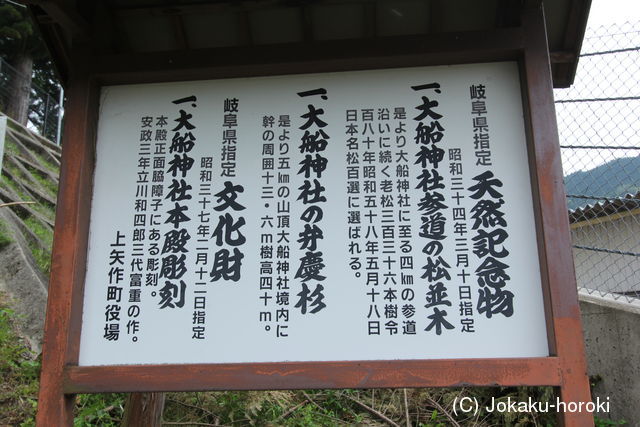 岐阜県指定 天然記念物
昭和三十四年三月十日指定
一、大船神社参道の松並木
是より大船神社に至る四㎞の参道
沿いに続く老松三百三十六本樹令
百八十年昭和五十八年五月十八日
日本名松百選に選ばれる。
一、大船神社の弁慶杉
是より五㎞の山頂大船神社境内に
幹の周囲十三・六m樹高四十m。
岐阜県指定 文化財
昭和三十七年二月十二日指定
一、大船神社本殿彫刻
本殿正面脇障子にある彫刻。
安政三年立川和四郎三代富重の作。
上矢作町役場
(C) Jokaku-horoki